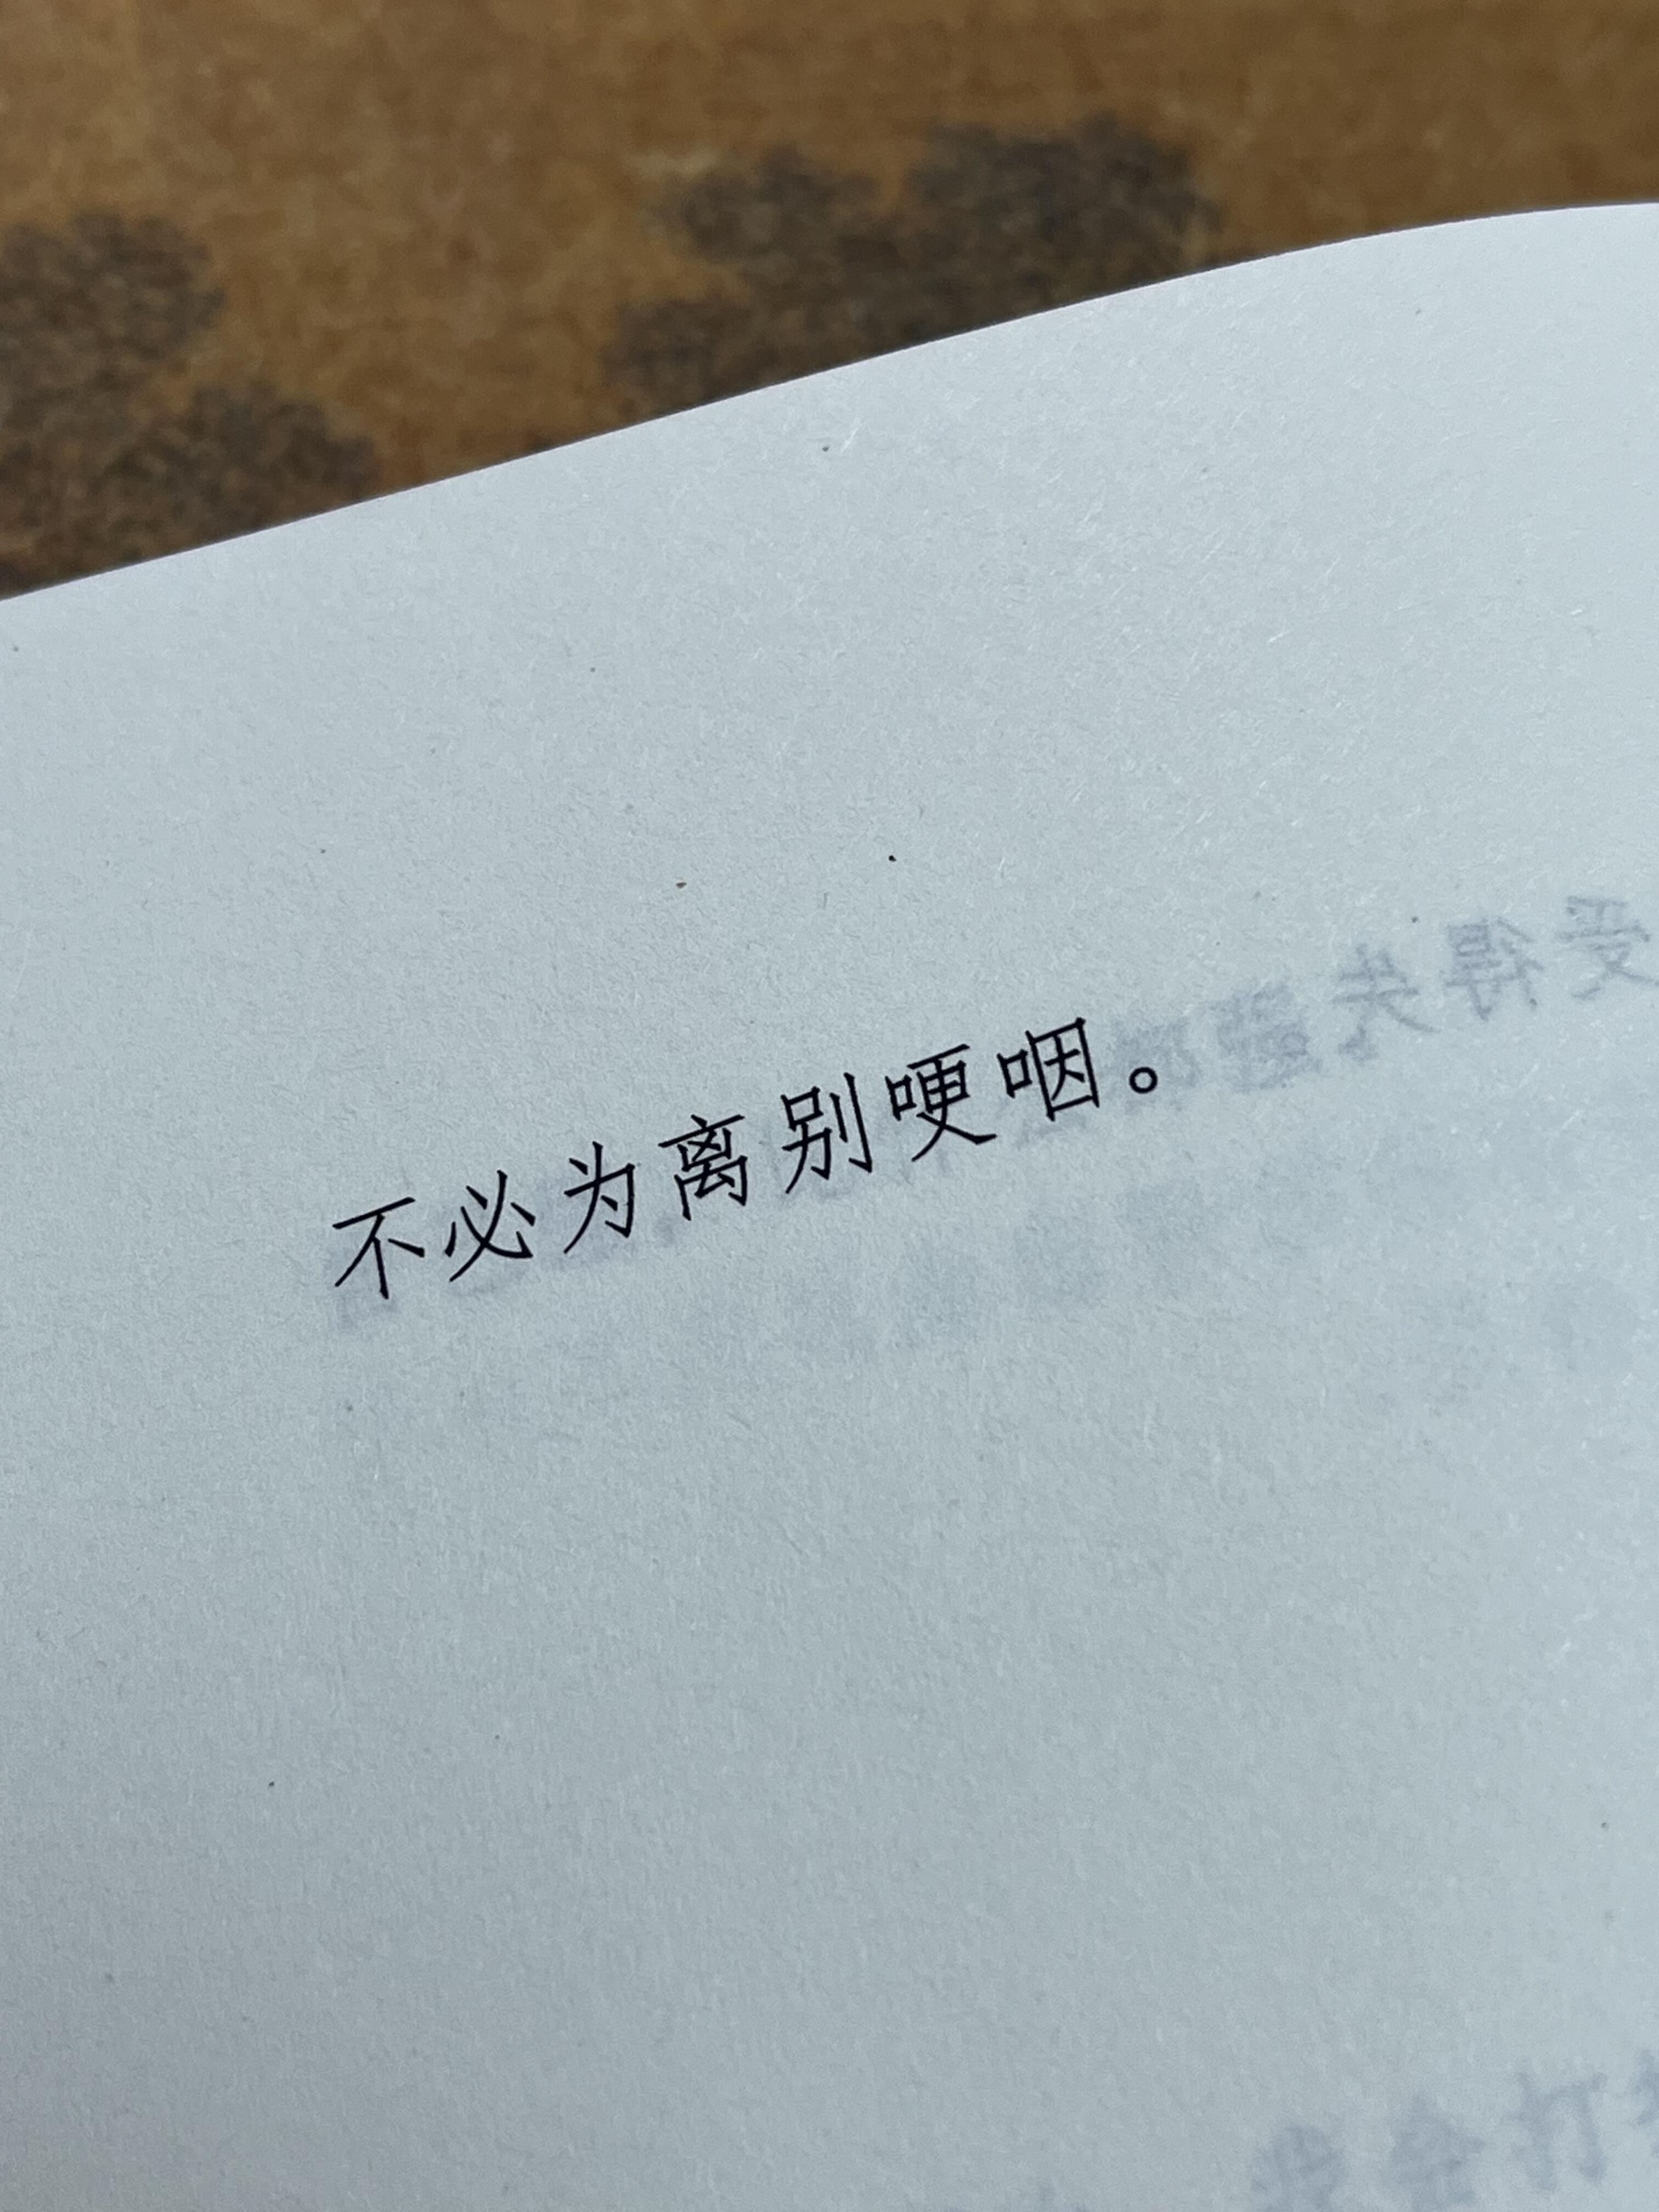 不必为离别哽咽。